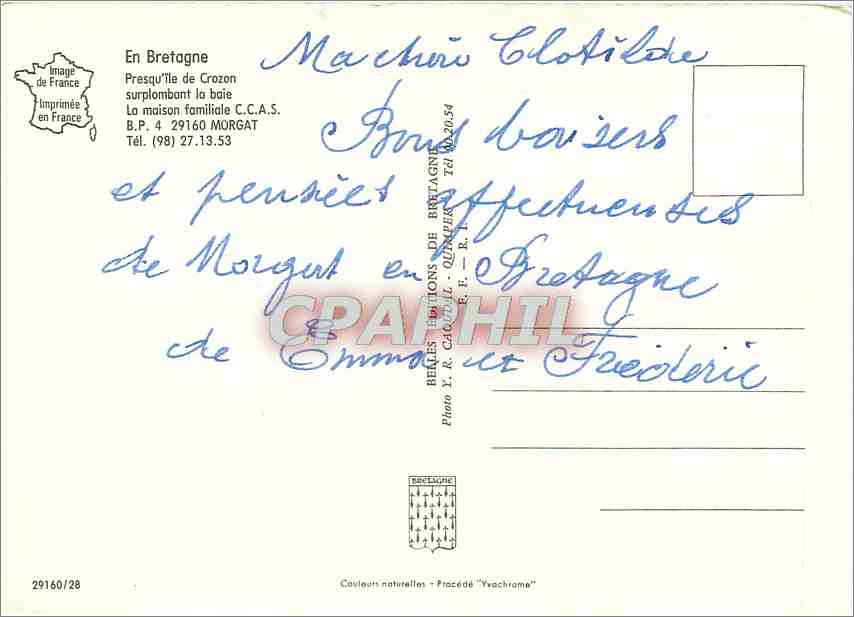 Image
de France
Imprimée
en France
En Bretagne
Presqu'île de Crozon
surplombant la baie
La maison familiale C.C.A.S.
B.P. 4 29160 MORGAT
Tél. (98) 27.13.53
Ma chérie Clotilde
Bons baisers
et pensées affectueuses
de Morgat en Bretagne
de Emma et Fréderic
BELLES EDITIONS DE BRETAGNE
Photo Y. R. CAOUDAL - QUIMPER Tél 90.20.54
F. F. — R. I.
CPAPHIL
BRETAGNE
29160/28
Couleurs naturelles - Procédé "Yvachrome"